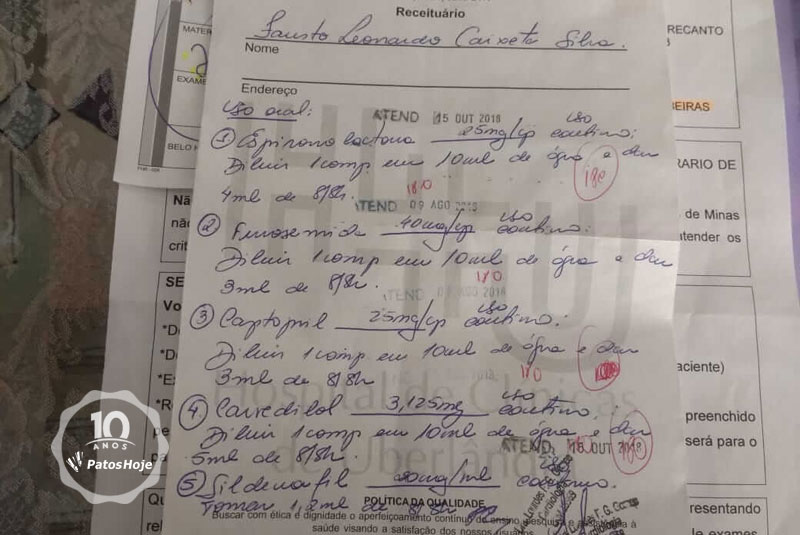 Receituário
Fausto Leonardo Caixeta Silva.
Nome
Endereço
Uso oral:
ATEND 15 OUT 2018
① Espironolactona 25mg/cp uso contínuo:
Diluir 1 comp em 10ml de água e dar
4ml de 8/8h. 180
180
ATEND 09 AGO 2018
② Furosemida 40mg/cp uso contínuo:
Diluir 1 comp em 10ml de água e dar
3ml de 8/8h. 180
ATEND 09 AGO 2018
③ Captopril 25mg/cp uso contínuo:
Diluir 1 comp em 10ml de água e dar
3ml de 8/8h 180
Hospital de Clínicas
de Uberlândia
④ Carvedilol 3,125mg uso contínuo:
Diluir 1 comp em 10ml de água e dar
ATEND 15 OUT 2018
5ml de 8/8h. 180
⑤ Sildenafil 20mg/ml contínuo
Tomar 1,2ml de 8/8h
POLÍTICA DA QUALIDADE
Buscar com ética e dignidade o aperfeiçoamento contínuo de ensino, pesquisa e
saúde visando a satisfação dos nossos usuários
MATER
EXAME
BELO H
Nã
não
crit
SE
Vo
*D
*D
*E
*R
pe
Qu
RECANTO
EIRAS
RARIO DE
de Minas
tender os
aciente)
preenchido
será para o
resentando
le exames
10
ANOS
PatosHoje